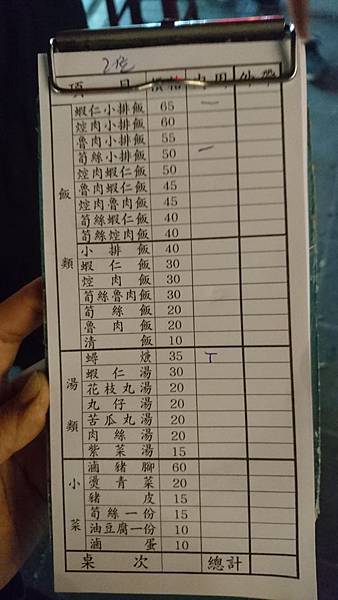 2位
項 目 價格 內用 外帶
飯類
蝦仁小排飯 65 一
焢肉小排飯 60
魯肉小排飯 55
筍絲小排飯 50 一
焢肉蝦仁飯 50
魯肉蝦仁飯 45
焢肉魯肉飯 45
筍絲蝦仁飯 40
筍絲焢肉飯 40
小排飯 40
蝦仁飯 30
焢肉飯 30
筍絲魯肉飯 30
筍絲飯 20
魯肉飯 20
清飯 10
湯類
蟳燠 35 丅
蝦仁湯 30
花枝丸湯 20
丸仔湯 20
苦瓜丸湯 20
肉絲湯 20
紫菜湯 15
小菜
滷豬腳 60
燙青菜 20
豬皮 15
筍絲一份 15
油豆腐一份 10
滷蛋 10
桌次 總計